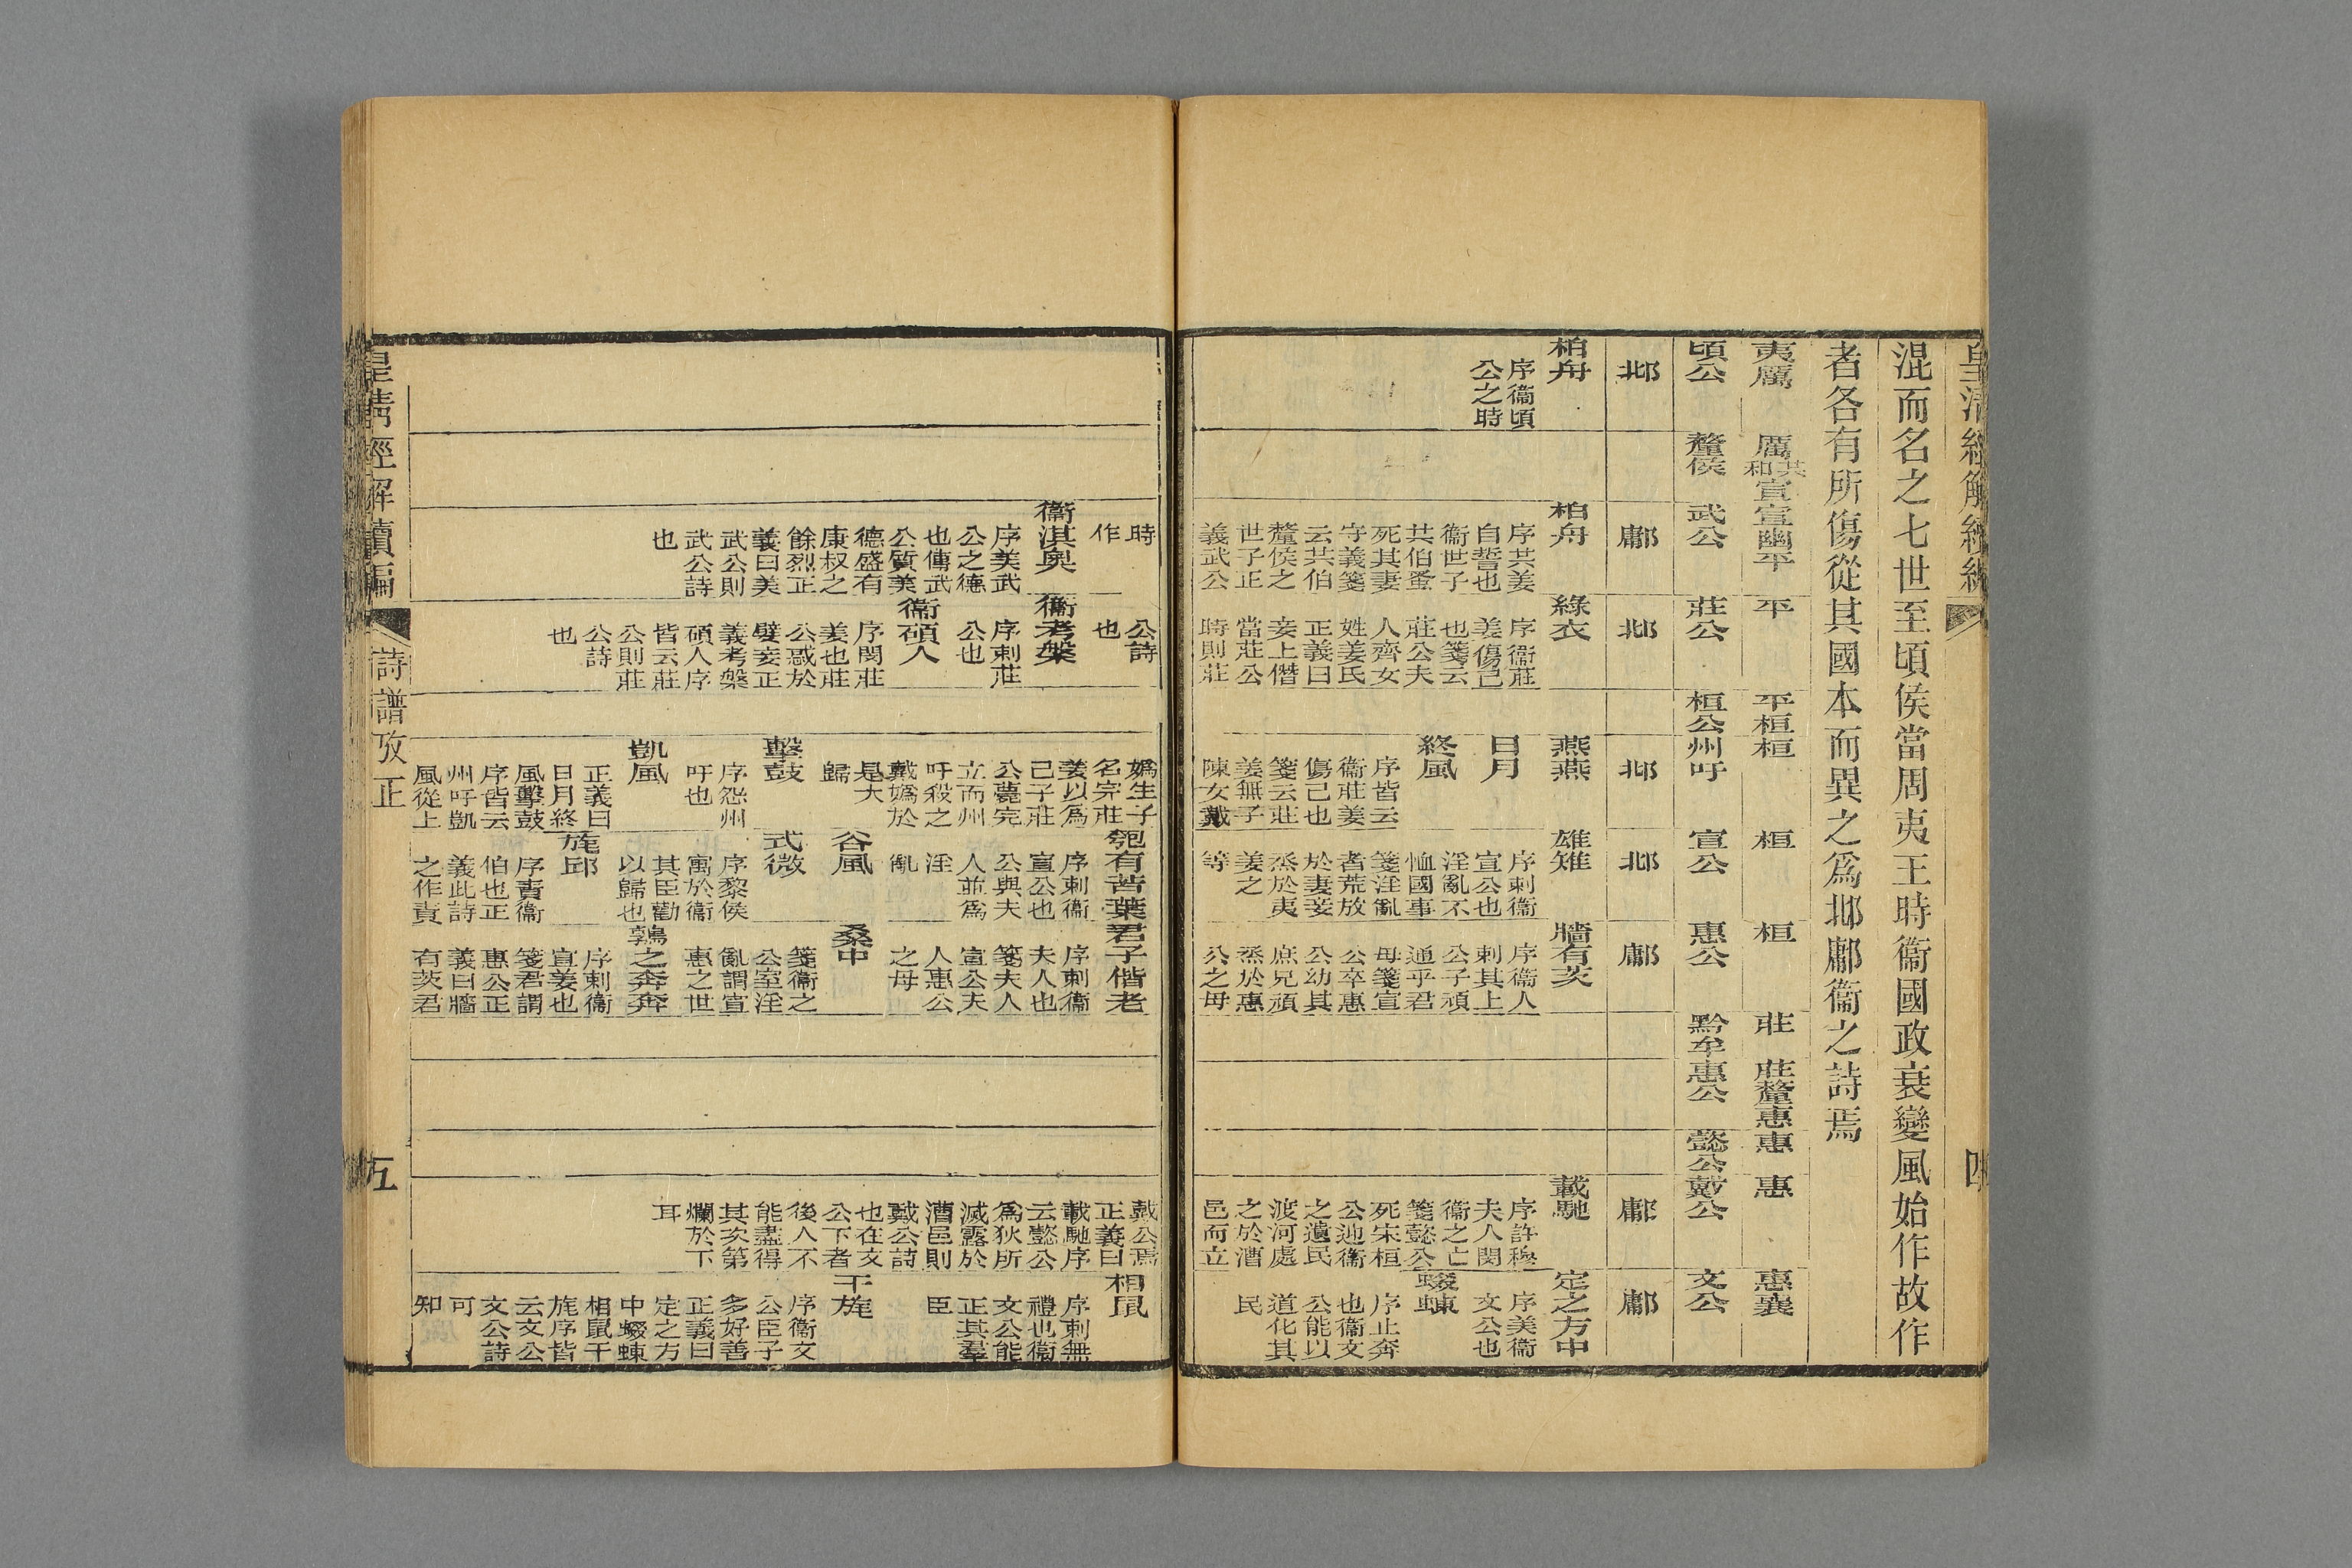 皇清經解續編
四
混而名之七世至頃侯當周夷王時衞國政衰變風始作故作
者各有所傷從其國本而異之爲邶鄘衞之詩焉
夷厲
厲共和宣
宣幽平
平
平桓
桓
桓
桓
莊
莊釐惠
惠
惠
惠襄
頃公
釐侯
武公
莊公
桓公
州吁
宣公
惠公
黔牟
惠公
懿公
戴公
文公
邶
鄘
邶
邶
邶
鄘
鄘
鄘
柏舟
序衞頃
公之時
柏舟
序共姜
自誓也
衞世子
共伯蚤
死其妻
守義箋
云共伯
釐侯之
世子正
義武公
綠衣
序衞莊
姜傷己
也箋云
莊公夫
人齊女
姓姜氏
正義曰
妾上僭
當莊公
時則莊
燕燕
日月
終風
序皆云
衞莊姜
傷己也
箋云莊
姜無子
陳女戴
雄雉
序刺衞
宣公也
淫亂不
恤國事
箋淫亂
者荒放
於妻妾
烝於夷
姜之
等
牆有茨
序衞人
刺其上
公子頑
通乎君
母箋宣
公卒惠
公幼其
庶兄頑
烝於惠
公之母
載馳
序許穆
夫人閔
衞之亡
箋懿公
死宋桓
公迎衞
之遺民
渡河處
之於漕
邑而立
定之方中
序美衞
文公也
蝃蝀
序止奔
也衞文
公能以
道化其
民
時
作
衞淇奥
序美武
公之德
也傳武
公質美
德盛有
康叔之
餘烈正
義曰美
武公則
武公詩
也
公詩
也
衞考槃
序刺莊
公也
衞碩人
序閔莊
姜也莊
公惑於
嬖妾正
義考槃
碩人序
皆云莊
公則莊
公詩
也
嬀生子
名完莊
姜以爲
己子莊
公薨完
立而州
吁殺之
戴嬀於
是大
歸
擊鼓
序怨州
吁也
凱風
正義曰
日月終
風擊鼓
序皆云
州吁凱
風從上
匏有苦葉
序刺衞
宣公也
公與夫
人並爲
淫
亂
谷風
式微
序黎侯
寓於衞
其臣勸
以歸也
旄邱
序責衞
伯也正
義此詩
之作責
君子偕老
序刺衞
夫人也
箋夫人
宣公夫
人惠公
之母
桑中
箋衞之
公室淫
亂謂宣
惠之世
鶉之奔奔
序刺衞
宣姜也
箋君謂
惠公正
義曰牆
有茨君
戴公焉
正義曰
載馳序
云懿公
爲狄所
滅露於
漕邑則
戴公詩
也在文
公下者
後人不
能盡得
其次第
爛於下
耳
相鼠
序刺無
禮也衞
文公能
正其羣
臣
干旄
序衞文
公臣子
多好善
正義曰
定之方
中蝃蝀
相鼠干
旄序皆
云文公
文公詩
可
知
皇清經解續編
詩譜攷正
五